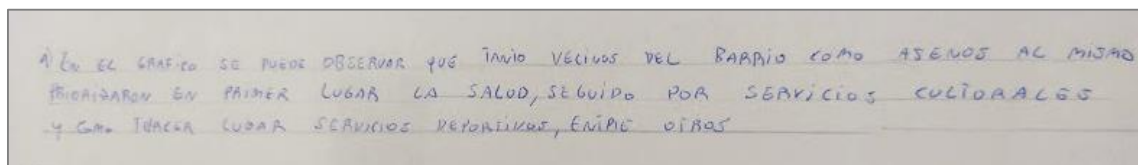 A) En EL GRAFico SE PUEDE OBSERVAR QUE TANTO VECINOS DEL BARRIO COMO AJENOS AL MISMO
PRIORIZARON EN PRIMER LUGAR LA SALUD, SEGUIDO POR SERVICIOS CULTORALES
Y COMO TERCER LUGAR SERVICIOS DEPORTIVOS, ENTRE OTROS